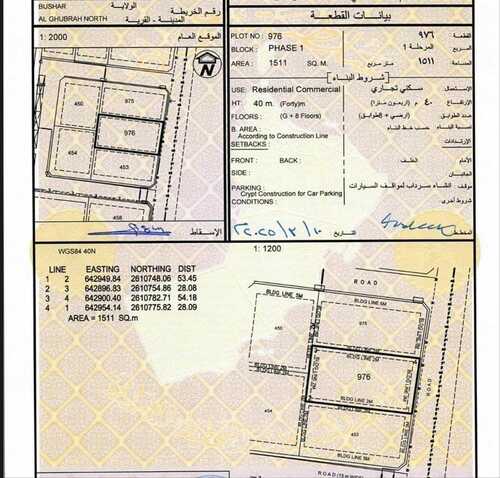 BUSHAR الولاية
AL GHUBRAH NORTH المدينة - القرية
رقم الخريطة
1: 2000 الموقع العام
450
975
976
454
453
N
الإسقاط
بيانات القطعة
PLOT NO : 976 ٩٧٦
BLOCK : PHASE 1 المرحلة 1 المربع
AREA : 1511 SQ. M. متر مربع ١٥١١ المساحة
شروط البناء
USE: Residential Commercial سكني تجاري الاستعمال
HT: 40 m. (Forty)m
FLOORS: (G + 8 Floors) (أرضي + 8طوابق) عدد الطوابق
B. AREA : According to Construction Line حسب خط البناء
SETBACKS: الإرتدادات
FRONT : BACK : الخلف الأمام
SIDE :
PARKING : Crypt Construction for Car Parking إنشاء سرداب لمواقف السيارات
CONDITIONS : شروط أخرى
WGS84 40N
1: 1200
LINE EASTING NORTHING DIST
1 2 642949.84 2610748.06 53.45
2 3 642896.83 2610754.86 28.08
3 4 642900.40 2610782.71 54.18
4 1 642954.14 2610775.82 28.09
AREA = 1511 SQ.m
ROAD
BLDG LINE 5M
450
BLDG LINE 2M
976
BLDG LINE 2M
454
453
BLDG LINE 5M
ROAD
ROAD